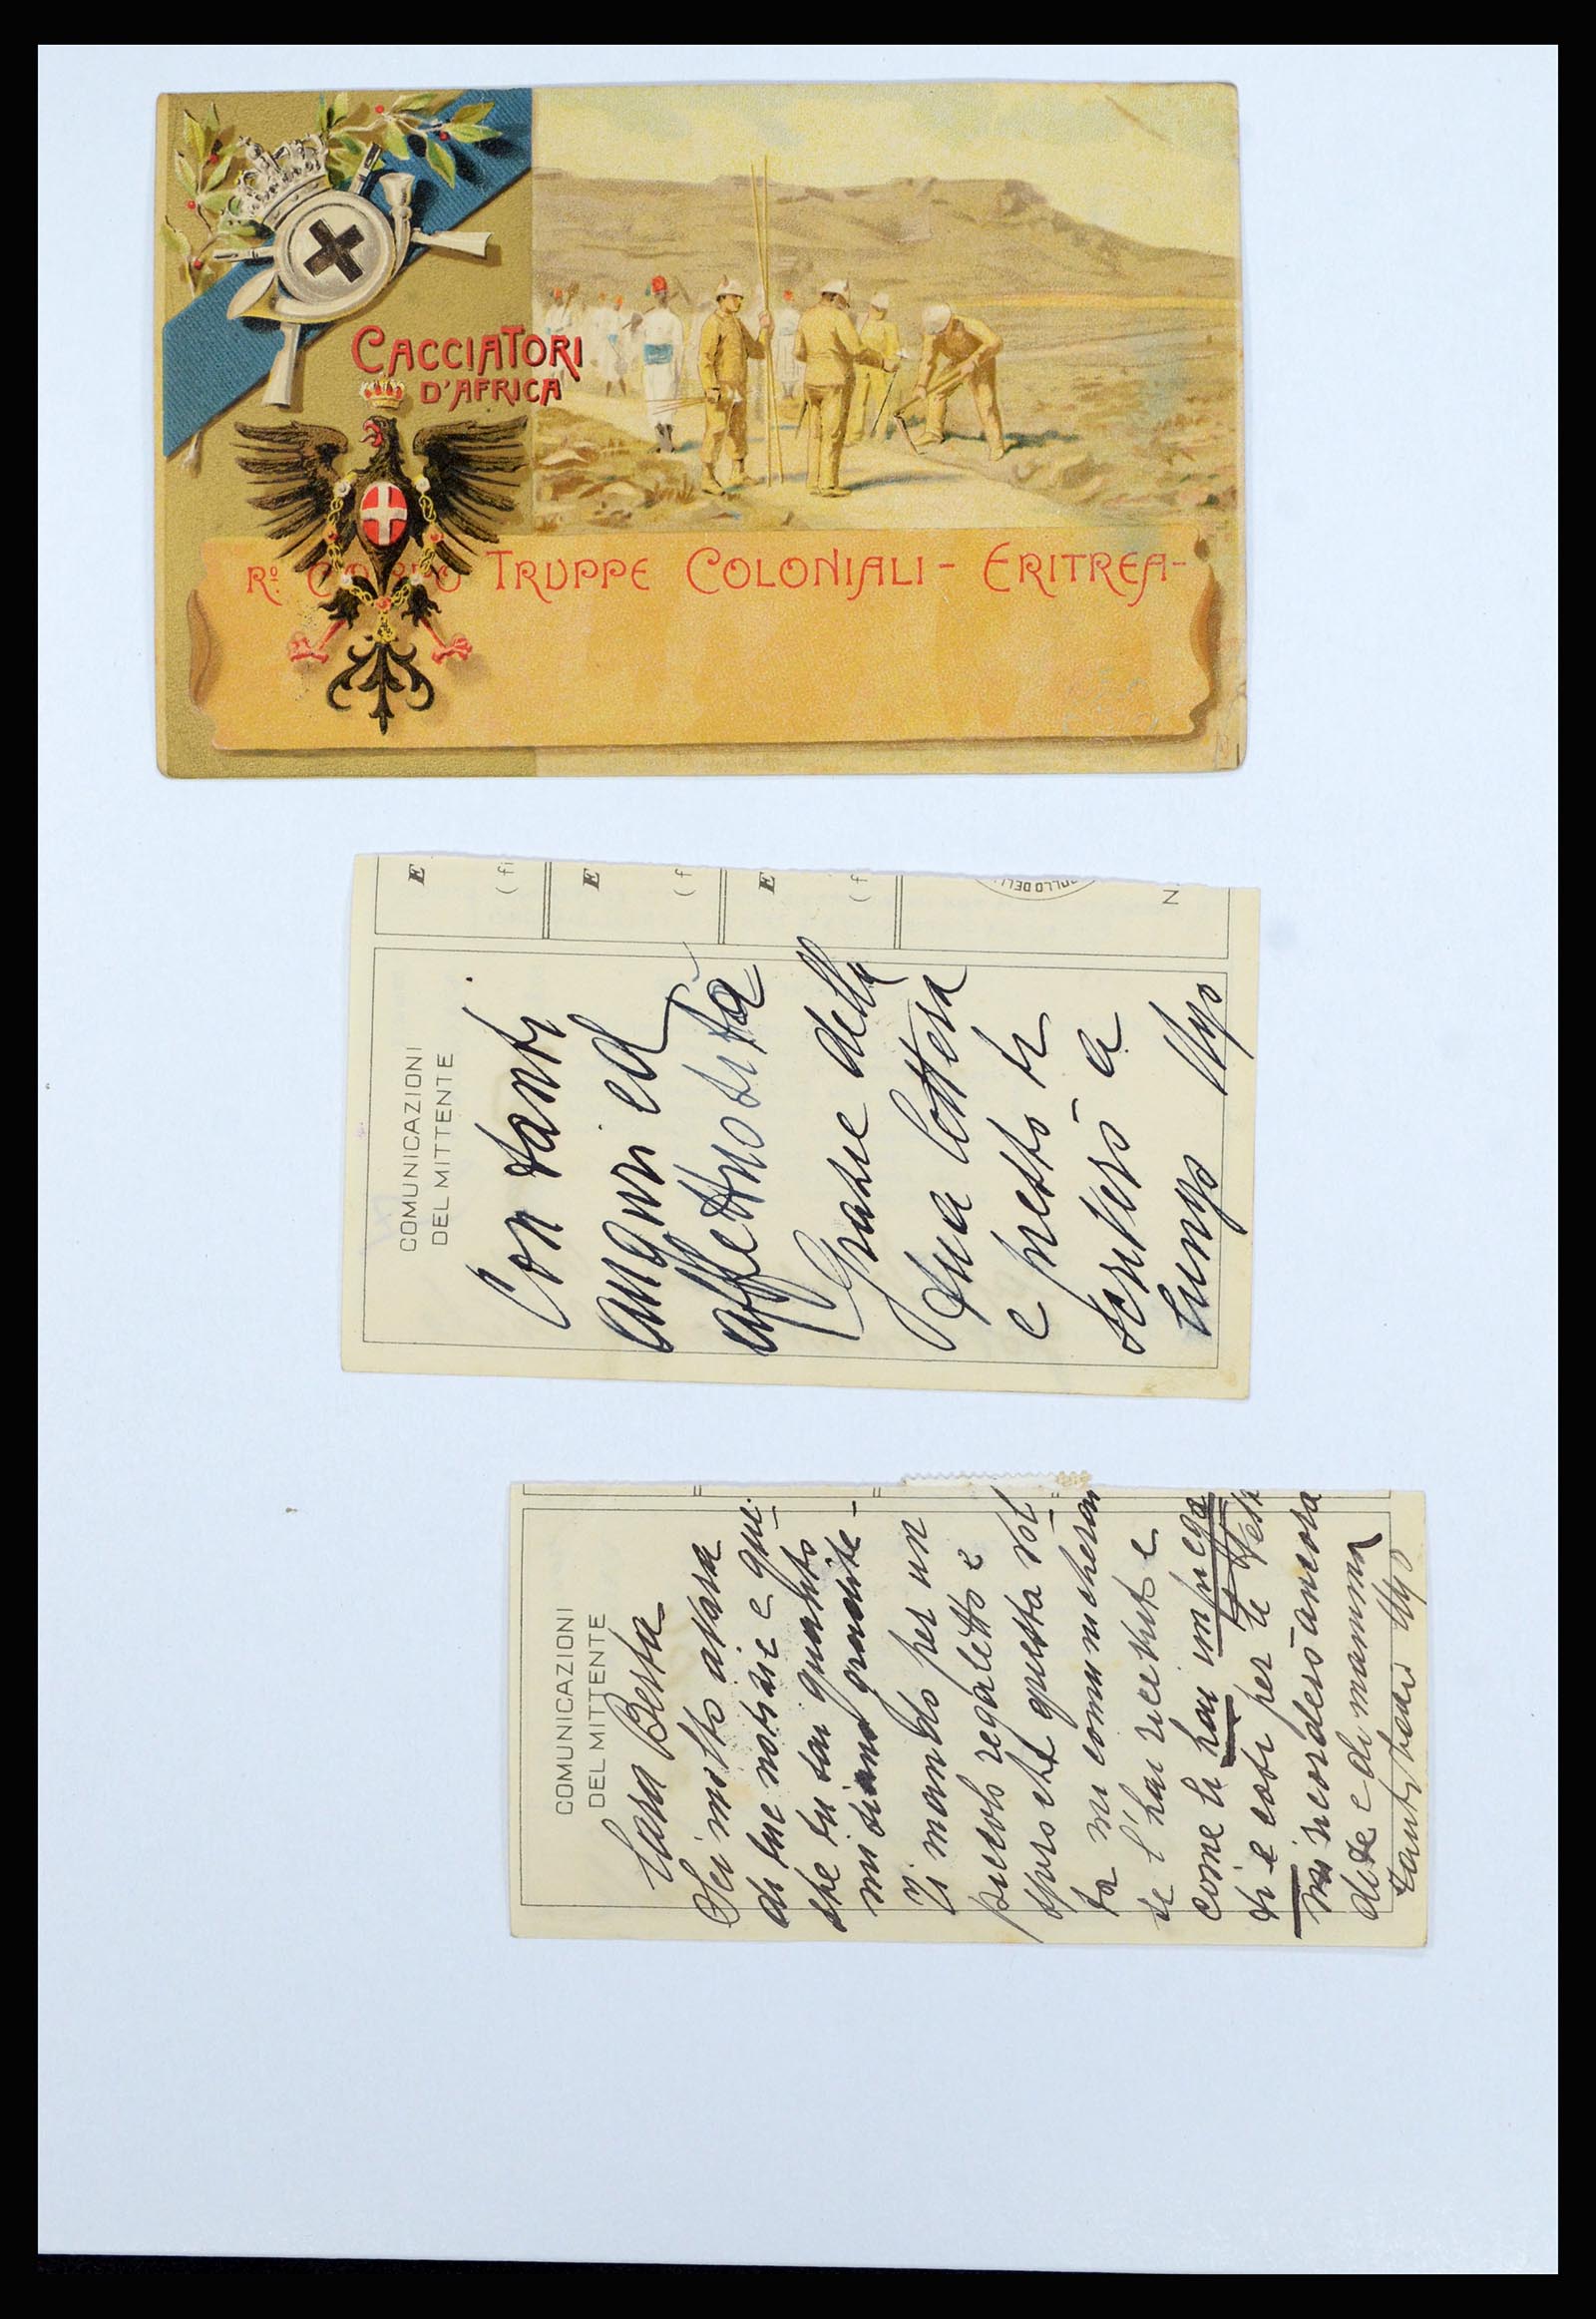 CACCIATORI
D'AFRICA
Rº. CORPO TRUPPE COLONIALI - ERITREA -
E
(fi
E
(f
E
(f
OLLO DELL
N
COMUNICAZIONI
DEL MITTENTE
Con tanti
auguri ed
affettuosità
Grazie della
tua lettera
e presto ti
scriverò a
lungo Ugo
COMUNICAZIONI
DEL MITTENTE
Cara Berta
Sei molto avara
di tue notizie e pure
che tu sai quanto
mi siano gradite -
Ti mando per un
piccolo regaletto e
spero che questa vol-
ta mi comunicheran
se l'hai ricevuto e
come li hai impiega
ti e così per le feste
mi ricorderò ancora
di te e di mamma
Tanti baci Ugo